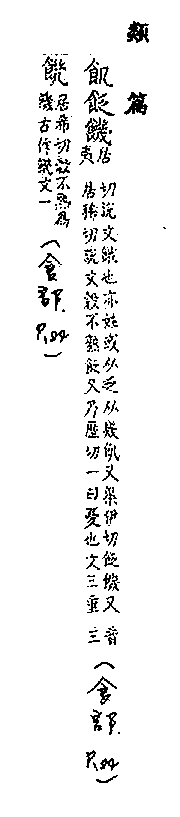 類篇
飢 饑 居夷切說文餓也亦姓或从乏从幾飢又渠伊切 饑又居狶切說文穀不熟 又乃歷切一曰憂也文三重音三 (食部.
居希切穀不熟爲饑古作 文一 (食部.